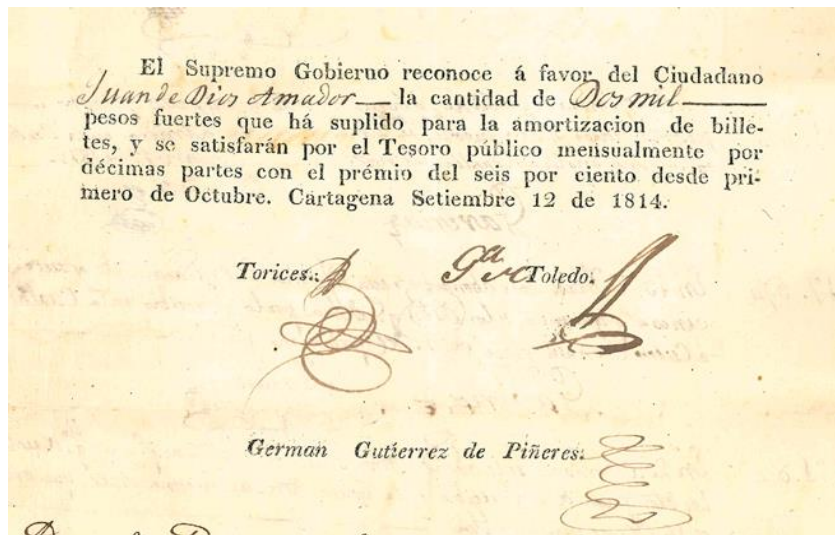 El Supremo Gobierno reconoce á favor del Ciudadano
Juan de Dios Amador la cantidad de Dos mil
pesos fuertes que há suplido para la amortizacion de bille-
tes, y se satisfarán por el Tesoro público mensualmente por
décimas partes con el prémio del seis por ciento desde pri-
mero de Octubre. Cartagena Setiembre 12 de 1814.
Torices. Toledo.
German Gutierrez de Piñeres.